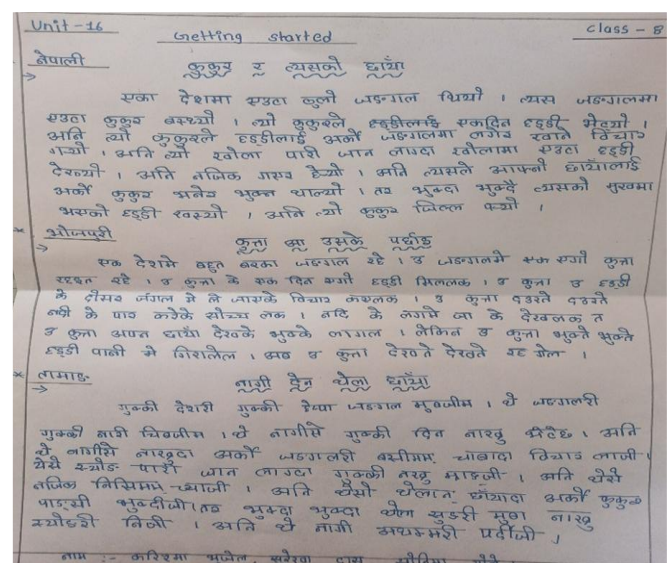 Unit-16
Getting started
Class - 8
नेपाली
कुकुर र त्यसको छाँया
एका देशमा एउटा ठुलो जङगाल थियो । त्यस जङगालमा
एउटा कुकुर बस्थ्यो । त्यो कुकुरले हड्डीलाई एकदिन हड्डी भेट्यो ।
अनि त्यो कुकुरले हड्डीलाई अर्को जङगालमा लगेर खाने विचार
गर्यो । अनि त्यो खोला पारी जान लाग्दा खोलामा एउटा हड्डी
देख्यो । अनि नजिक गएर हेर्यो । अनि त्यसले आफ्नो छाँयालाई
अर्को कुकुर भनेर भुक्न थाल्यो । तर भुक्दा भुक्दै त्यसको मुखमा
भएको हड्डी खस्यो । अनि त्यो कुकुर जिल्ल पर्यो ।
* भोजपुरी
कुत्ता आ उसके पर्छाइ
एक देशमे बहुत बरका जङगाल रहे । उ जङगालमे एक एगो कुत्ता
रहइत रहे । उ कुत्ता के एक दिन एगो हड्डी मिललक । उ कुत्ता उ हड्डी
के दोसर जंगल मे ले जाएके विचार कएलक । उ कुत्ता दउरते दउरते
नदी के पार करेके सोच्च लक । नदि के लगमे जा के देखलक त
उ कुत्ता अपन छाँया देखके भुक्के लागल । लेकिन उ कुत्ता भुक्ते भुक्ते
हड्डी पानी मे गिरालेल । अब उ कुत्ता देखते देखते रह गेल ।
* तामाङ
नागी देन थेला छाँया
गुक्की देशरी गुक्की ह्रेप्पा जङगाल मुबजीम । थे जङगालरी
गुक्की नागी चिबजीम । थे नागीसे गुक्की दिन नाख्रु भेटैह । अनि
थे नागीसे नाख्रुदा अर्को जङगालरी बसीगाम चाबादा विचार लाजी ।
थेसे स्योङ पारी जान लाग्दा गुक्की नख्रु म्राङजी । अनि थेसे
नजिक निसिमाम च्याजी । अनि थेसे थेलान छाँयादा अर्को कुकुर
पाङसी भुक्दीजी । तर भुक्दा भुक्दा थेला सुङरी मुबा नाख्रु
स्योङरी निजी । अनि थे नागी अचम्मरी पर्दीजी ।
नाम :- करिश्मा